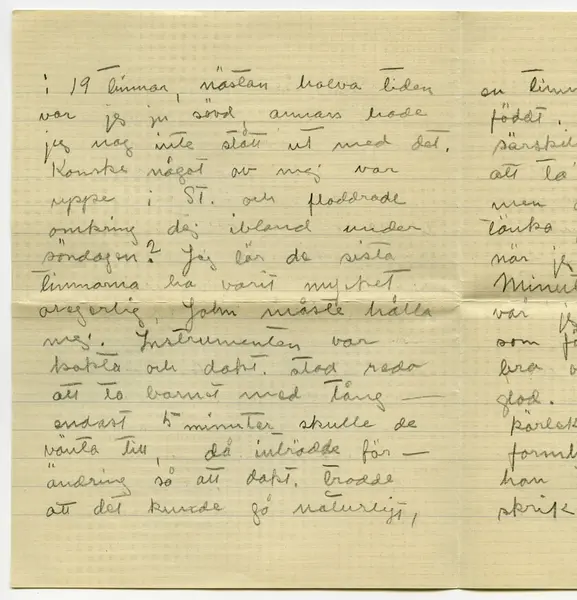 i 19 timmar, nästan halva tiden
var jag ju sövd, annars hade
jag nog inte stått ut med det.
Kanske något av mej var
uppe i ST. och fladdrade
omkring dej ibland under
söndagen? Jag lär de sista
timmarna ha varit mycket
oregerlig, John måste hålla
mej. Instrumenten var
kokta och dokt. stod redo
att ta barnet med tång —
endast 5 minuter skulle de
vänta till, då inträdde för-
ändring så att dokt. trodde
att det kunde gå naturligt,
en timm
född.
särskil
att ta
men
tänka
när je
Minu
var je
som fö
bra v
glad.
kärlek
forml
han
skrik